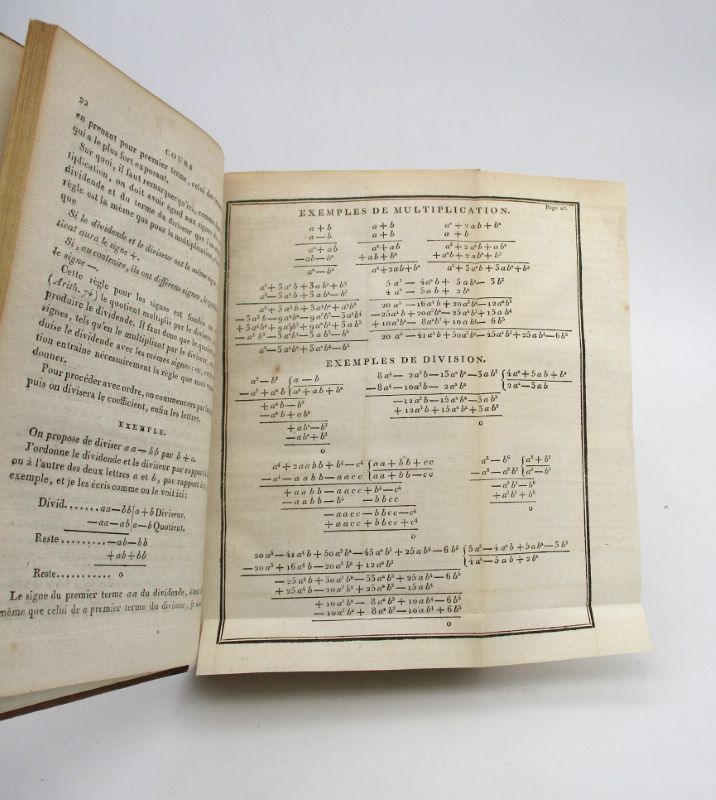 22
COURS
en prenant pour premier terme, celui des
qui a le plus fort exposant.
Sur quoi, il faut remarquer qu'ici, comme
tiplication, on doit avoir égard aux signes
dividende et du terme du diviseur que l'on
règle est la même que pour la multiplication,
que
Si le dividende et le diviseur ont le même signe,
tient aura le signe +.
Si, au contraire, ils ont différens signes, le
le signe —.
Cette règle pour les signes est fondée
(Arith. 74) le quotient multiplié par le diviseur
produire le dividende. Il faut donc que le quotient
signes, tels qu'en le multipliant par le diviseur,
duise le dividende avec les mêmes signes: or,
tion entraîne nécessairement la règle que nous
donner.
Pour procéder avec ordre, on commencera par
puis on divisera le coefficient, enfin les lettres.
EXEMPLE.
On propose de diviser aa—bb par b+a.
J'ordonne le dividende et le diviseur par rapport
ou à l'autre des deux lettres a et b, par rapport
exemple, et je les écris comme on le voit ici:
Divid.......aa—bb | a+b Diviseur.
—aa—ab | a—b Quotient.
Reste.........—ab—bb
+ab+bb
Reste...........0
Le signe du premier terme aa du dividende,
même que celui de a premier terme du diviseur,
Page 21.
EXEMPLES DE MULTIPLICATION.
a+b a+b a²+2ab+b²
a—b a+b a+b
a²+ab a²+ab a³+2a²b+ab²
—ab—b² +ab+b² +a²b+2ab²+b³
a²—b² a²+2ab+b² a³+3a²b+3ab²+b³
a³+3a²b+3ab²+b³ 5a³—4a²b+5ab²—3b³
a³—3a²b+3ab²—b³ 4a²—5ab+2b²
a⁶+3a⁵b+3a⁴b²+a³b³ 20a⁵—16a⁴b+20a³b²—12a²b³
—3a⁵b—9a⁴b²—9a³b³—3a²b⁴ —25a⁴b+20a³b²—25a²b³+15ab⁴
+3a⁴b²+9a³b³+9a²b⁴+3ab⁵ +10a³b²—8a²b³+10ab⁴—6b⁵
—a³b³—3a²b⁴—3ab⁵—b⁶ 20a⁵—41a⁴b+50a³b²—45a²b³+25ab⁴—6b⁵
a⁶—3a⁴b²+3a²b⁴—b⁶
EXEMPLES DE DIVISION.
a³—b³ {a—b 8a⁴—2a³b—13a²b²—3ab³ {4a²+5ab+b²
—a³+a²b {a²+ab+b² —8a⁴—10a³b—2a²b² {2a²—3ab
+a²b—b³ —12a³b—15a²b²—3ab³
—a²b+ab² +12a³b+15a²b²+3ab³
+ab²—b³ 0
—ab²+b³
0
a⁴+2aabb+b⁴—c⁴ {aa+bb+cc a⁶—b⁶ {a³+b³
—a⁴—aabb—aacc {aa+bb—cc —a⁶—a³b³ {a³—b³
+aabb—aacc+b⁴—c⁴ —a³b³—b⁶
—aabb—b⁴—bbcc +a³b³+b⁶
—aacc—bbcc—c⁴ 0
+aacc+bbcc+c⁴
0
20a⁵—41a⁴b+50a³b²—45a²b³+25ab⁴—6b⁵ {5a³—4a²b+5ab²—3b³
—20a⁵+16a⁴b—20a³b²+12a²b³ {4a²—5ab+2b²
—25a⁴b+30a³b²—33a²b³+25ab⁴—6b⁵
+25a⁴b—20a³b²+25a²b³—15ab⁴
+10a³b²—8a²b³+10ab⁴—6b⁵
—10a³b²+8a²b³—10ab⁴+6b⁵
0